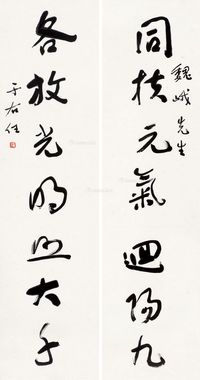 同扶元氣迴陽九
魏峨先生
各放光明照大千
于右任